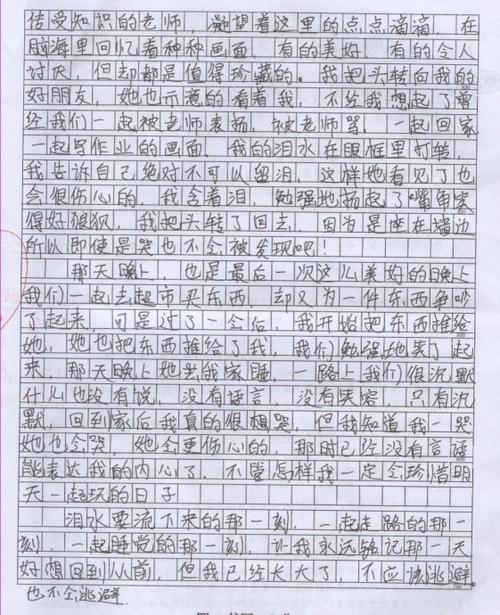 传受知识的老师，凝望着这里的点点滴滴，在
脑海里回忆着种种画面，有的美好，有的令人
讨厌，但却都是值得珍藏的。我把头转向我的
好朋友，她也示意的看着我，不经我想起了曾
经我们一起被老师表扬，被老师骂，一起回家
一起写作业的画面，我的泪水在眼框里打转，
我告诉自己绝对不可以留泪，这样她看见了也
会很伤心的，我含着泪，勉强地扬起了嘴角变
得好狼狈，我把头转了回去，因为是座在墙边
所以即使是哭也不会被发现吧！
那天晚上，也是最后一次这么美好的晚上
我们一起去超市买东西，却又为一件东西争吵
了起来，可是过了一会后，我开始把东西推给
她，她也把东西推给了我，我们勉强地笑了起
来，那天晚上她去我家睡，一路上我们很沉默
什么也没有说，没有语言，没有笑容，只有沉
默，回到家后我真的很想哭，但我知道我一哭
她也会哭，她会更伤心的，那时已经没有言语
能表达我的内心了，不管怎样我一定会珍惜明
天一起玩的日子
泪水要流下来的那一刻，一起走路的那一
刻，一起睡觉的那一刻，让我永远铭记那一天
好想回到从前，但我已经长大了，不应该逃避
也不会逃避。